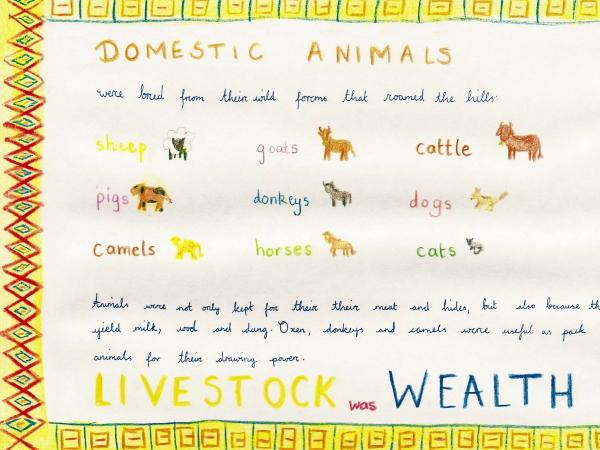 DOMESTIC ANIMALS
were bred from their wild forms that roamed the hills:
sheep goats cattle
pigs donkeys dogs
camels horses cats
Animals were not only kept for their their meat and hides, but also because th
yield milk, wool and dung. Oxen, donkeys and camels were useful as pack
animals for their drawing power.
LIVESTOCK was WEALTH